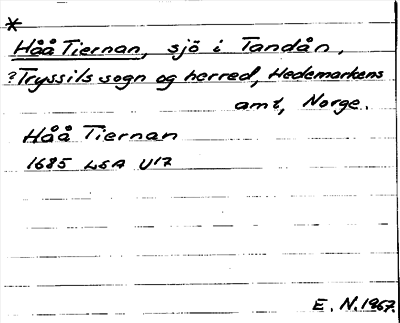 *
Håå Tiernan, sjö i Tandån,
?Tryssils sogn og herred, Hedemarkens
amt, Norge.
Håå Tiernan
1685 LSA U17
E. N. 1967.